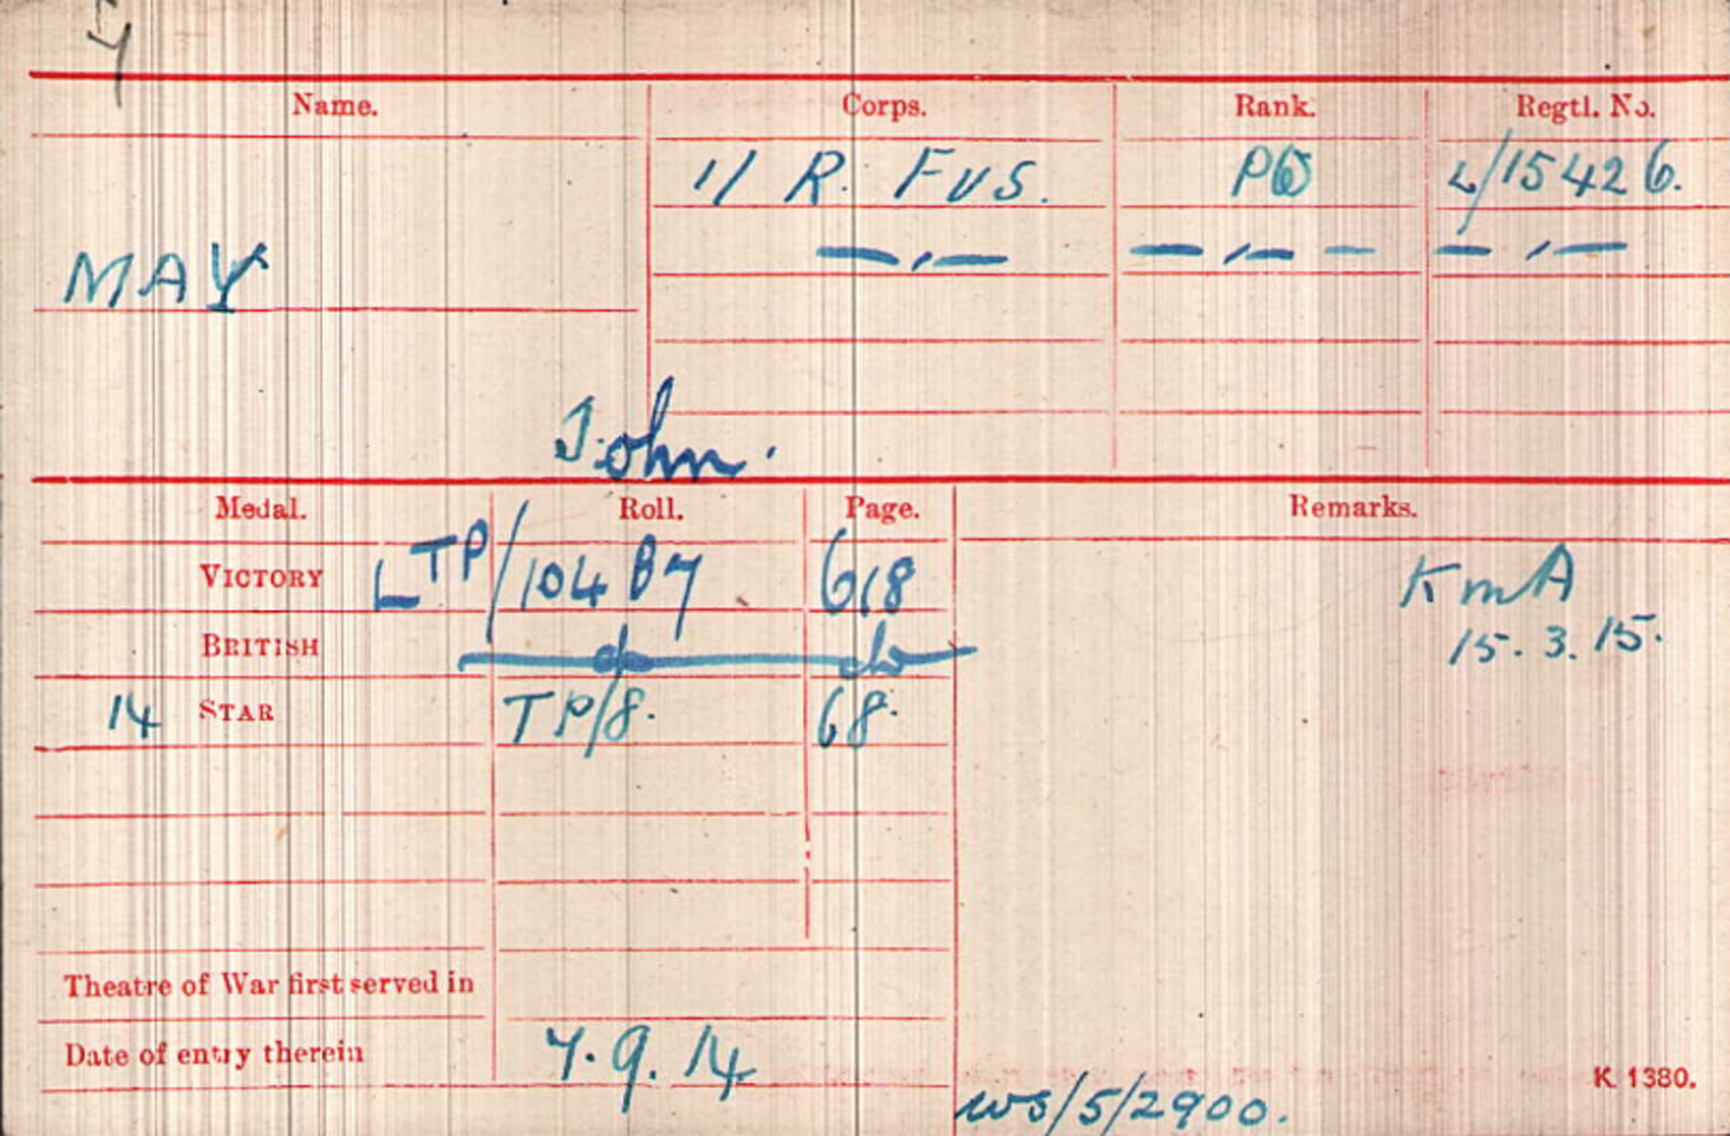 Name. Corps. Rank. Regtl. No.
1/ R. FUS. Pte L/15426.
MAY —„— —„— — —„—
John.
Medal. Roll. Page. Remarks.
VICTORY L TP/104 B7 618 K m A
BRITISH do do 15. 3. 15.
14 STAR TP/8. 68.
Theatre of War first served in
Date of entry therein 7. 9. 14
K 1380.
WS/5/2900.